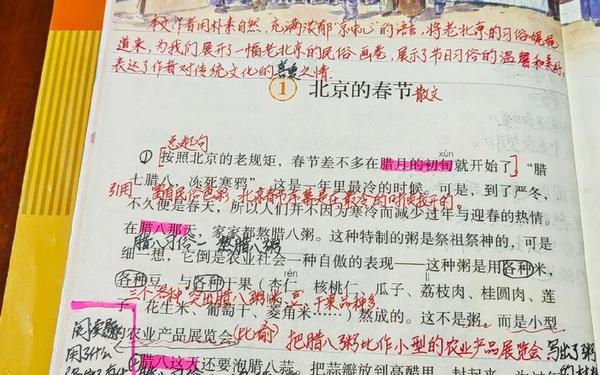 本文作者用朴素自然、充满浓郁"京味儿"的语言,将老北京的习俗娓娓
道来,为我们展开了一幅老北京的民俗画卷,展示了节日习俗的温馨和美好,
表达了作者对传统文化的喜爱之情。
1 北京的春节 散文
总起句
xún
①[按照北京的老规矩,春节差不多在腊月的初旬就开始了]"腊
七腊八,冻死寒鸦",这是一年里最冷的时候。可是,到了严冬,
引用 富有民俗色彩,北京春节序幕是在最冷的时候拉开的。
不久便是春天,所以人们并不因为寒冷而减少过年与迎春的热情。
在腊八那天,家家都熬腊八粥。这种特制的粥是祭祖祭神的,可是
腊八习俗一 熬腊八粥
细一想,它倒是农业社会一种自傲的表现——这种粥是用各种米,
rén
各种豆,与各种干果(杏仁、核桃仁、瓜子、荔枝肉、桂圆肉、莲
三个各种,突出腊八粥米、豆、干果品种多
子、花生米、葡萄干、菱角米……)熬成的。这不是粥,而是小型
的农业产品展览会。(比喻) 把腊八粥比作小型的农业产品展览会 写出了粥
用了什么
腊八这天还要泡腊八蒜。把蒜瓣放到高醋里,封起来,为过年